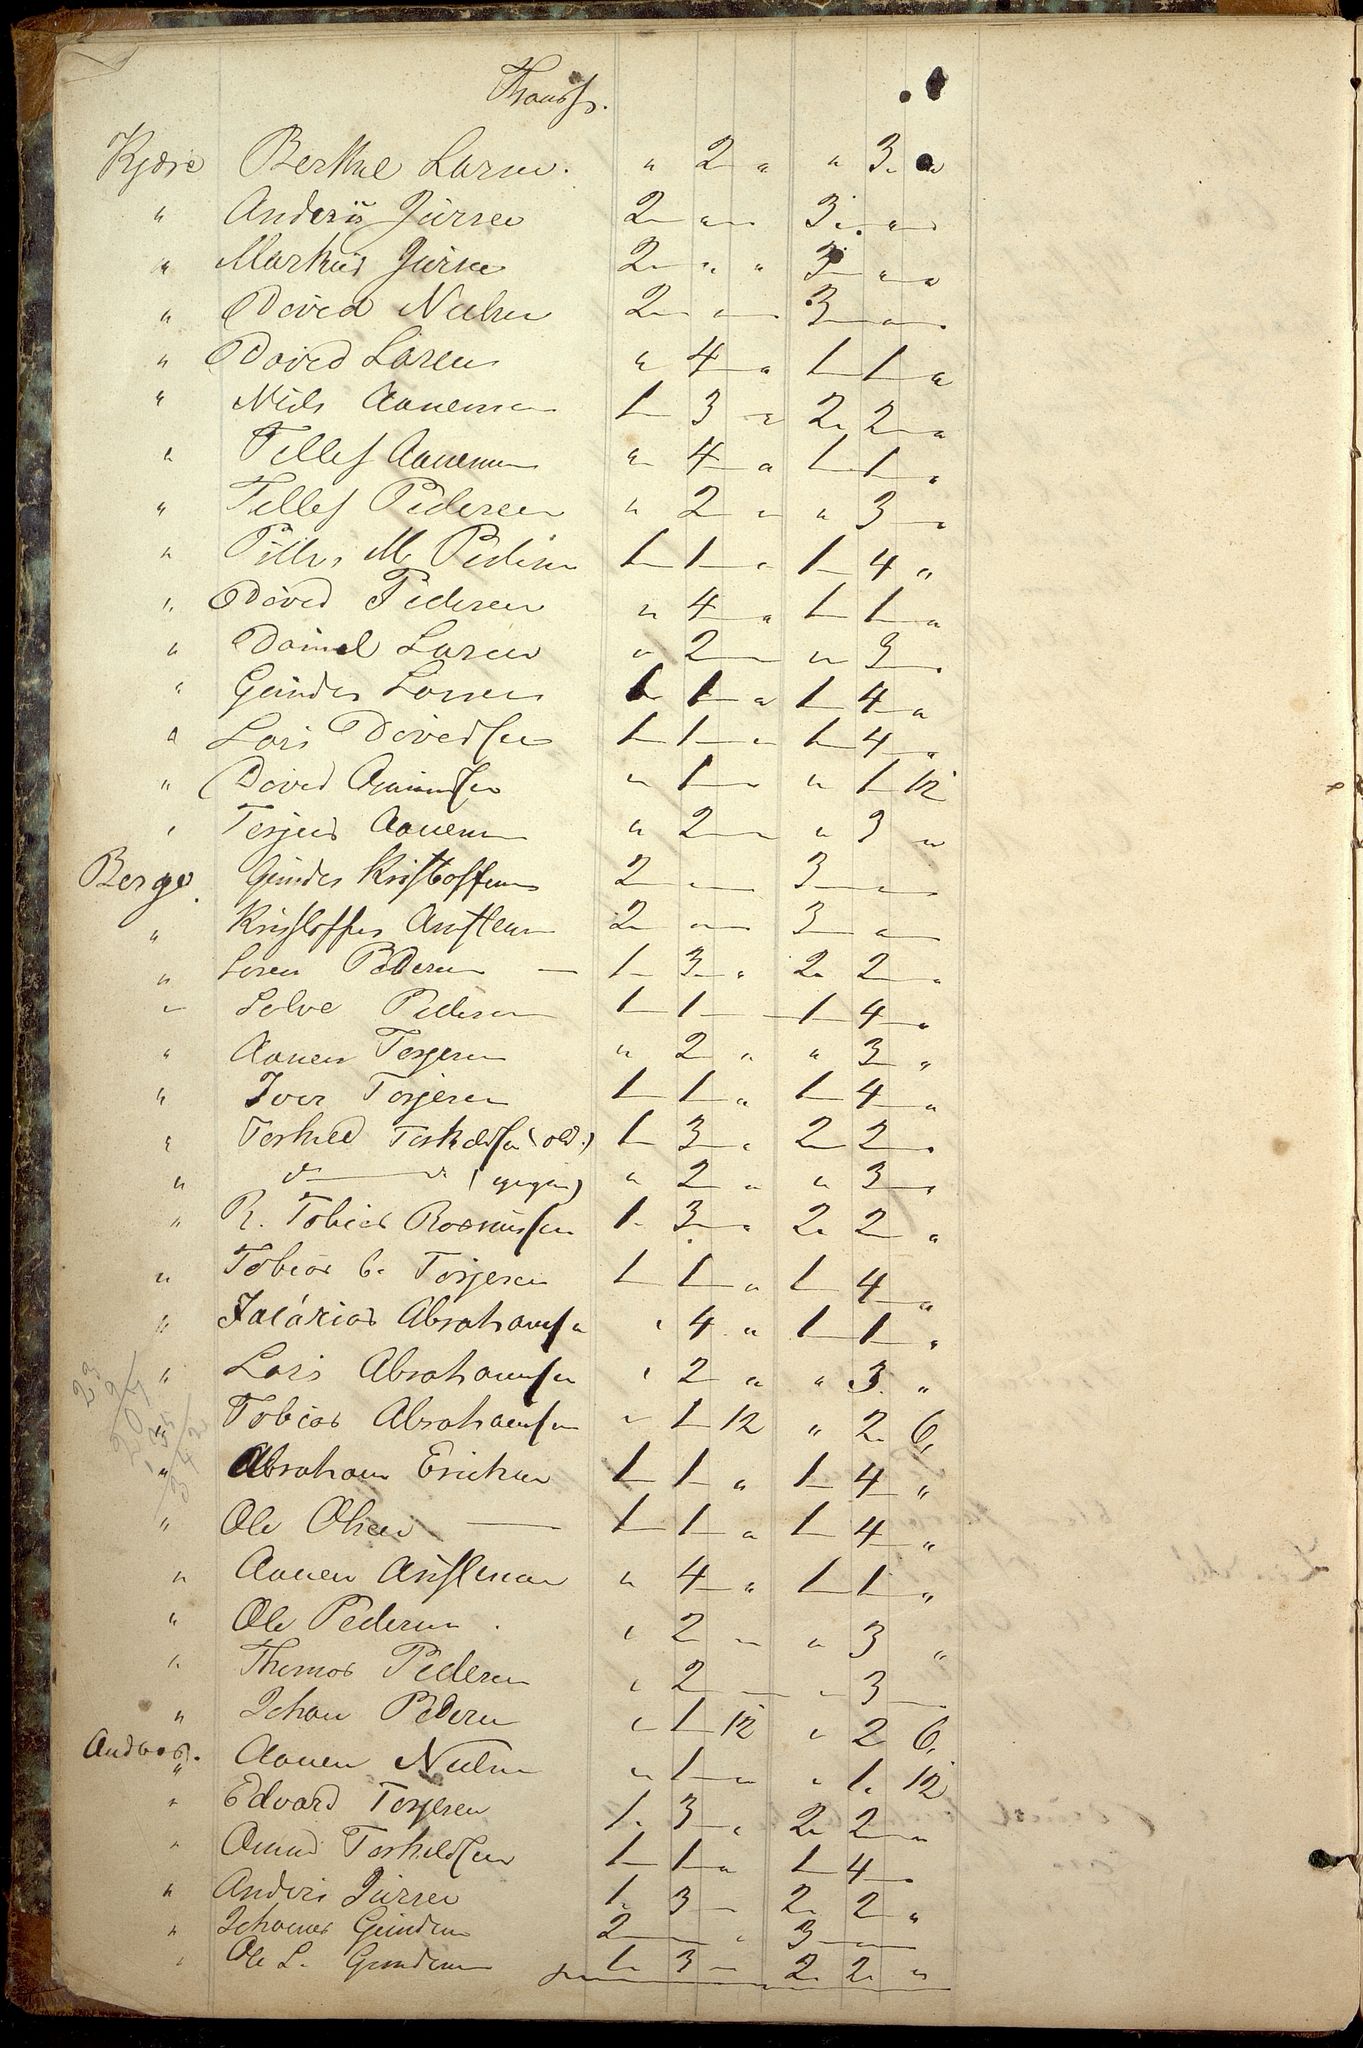 Transp.
Kjøre Berthel Larsen. " 2 " " 3 "
" Anders Jürsen 2 " " 3 " "
" Markus Jürsen 2 " " 3 " "
" David Nielsen 2 " " 3 " "
" David Larsen " 4 " 1 1 "
" Niels Aanensen 1 3 " 2 2 "
" Tellef Aanensen " 4 " 1 1 "
" Tellef Pedersen " 2 " " 3 "
" M Pedersen 1 1 " 1 4 "
" David Pedersen " 4 " 1 1 "
" Daniel Larsen " 2 " " 3 "
" Gunder Larsen 1 1 " 1 4 "
" Lars Davidsen 1 1 " 1 4 "
" David " 1 " " 1 12
" Terjus Aanensen " 2 " " 3 "
Berge. Gunder Kristoffersen 2 " " 3 " "
" Kristoffer Austensen 2 " " 3 " "
" Soren Pedersen 1 3 " 2 2 "
" Solve Pedersen 1 1 " 1 4 "
" Aanen Terjesen " 2 " " 3 "
" Iver Terjesen 1 1 " 1 4 "
" Terkild Terkildsen (old.) 1 3 " 2 2 "
" d — " (yngre) " 2 " " 3 "
" R. Tobias Rasmussen 1 3 " 2 2 "
" Tobias G. Terjesen 1 1 " 1 4 "
" Zacarias Abrahamsen " 4 " 1 1 "
" Lars Abrahamsen " 2 " " 3 "
" Tobias Abrahamsen " 1 12 " 2 6
" Abraham Ericksen 1 1 " 1 4 "
" Ole Olsen 1 1 " 1 4 "
" Aanen Austensen " 4 " 1 1 "
" Ole Pedersen. " 2 " " 3 "
" Thomas Pedersen " 2 " " 3 "
" Johan Pedersen " 1 12 " 2 6
Andaas. " Aanen Nielsen " 1 " " 1 12
" Edvard Terjesen 1 3 " 2 2 "
" Amund Terkildsen 1 1 " 1 4 "
" Anders Jürsen 1 3 " 2 2 "
" Johannes Gundersen 2 " " 3 " "
" Ole L. Gundersen 1 3 " 2 2 "